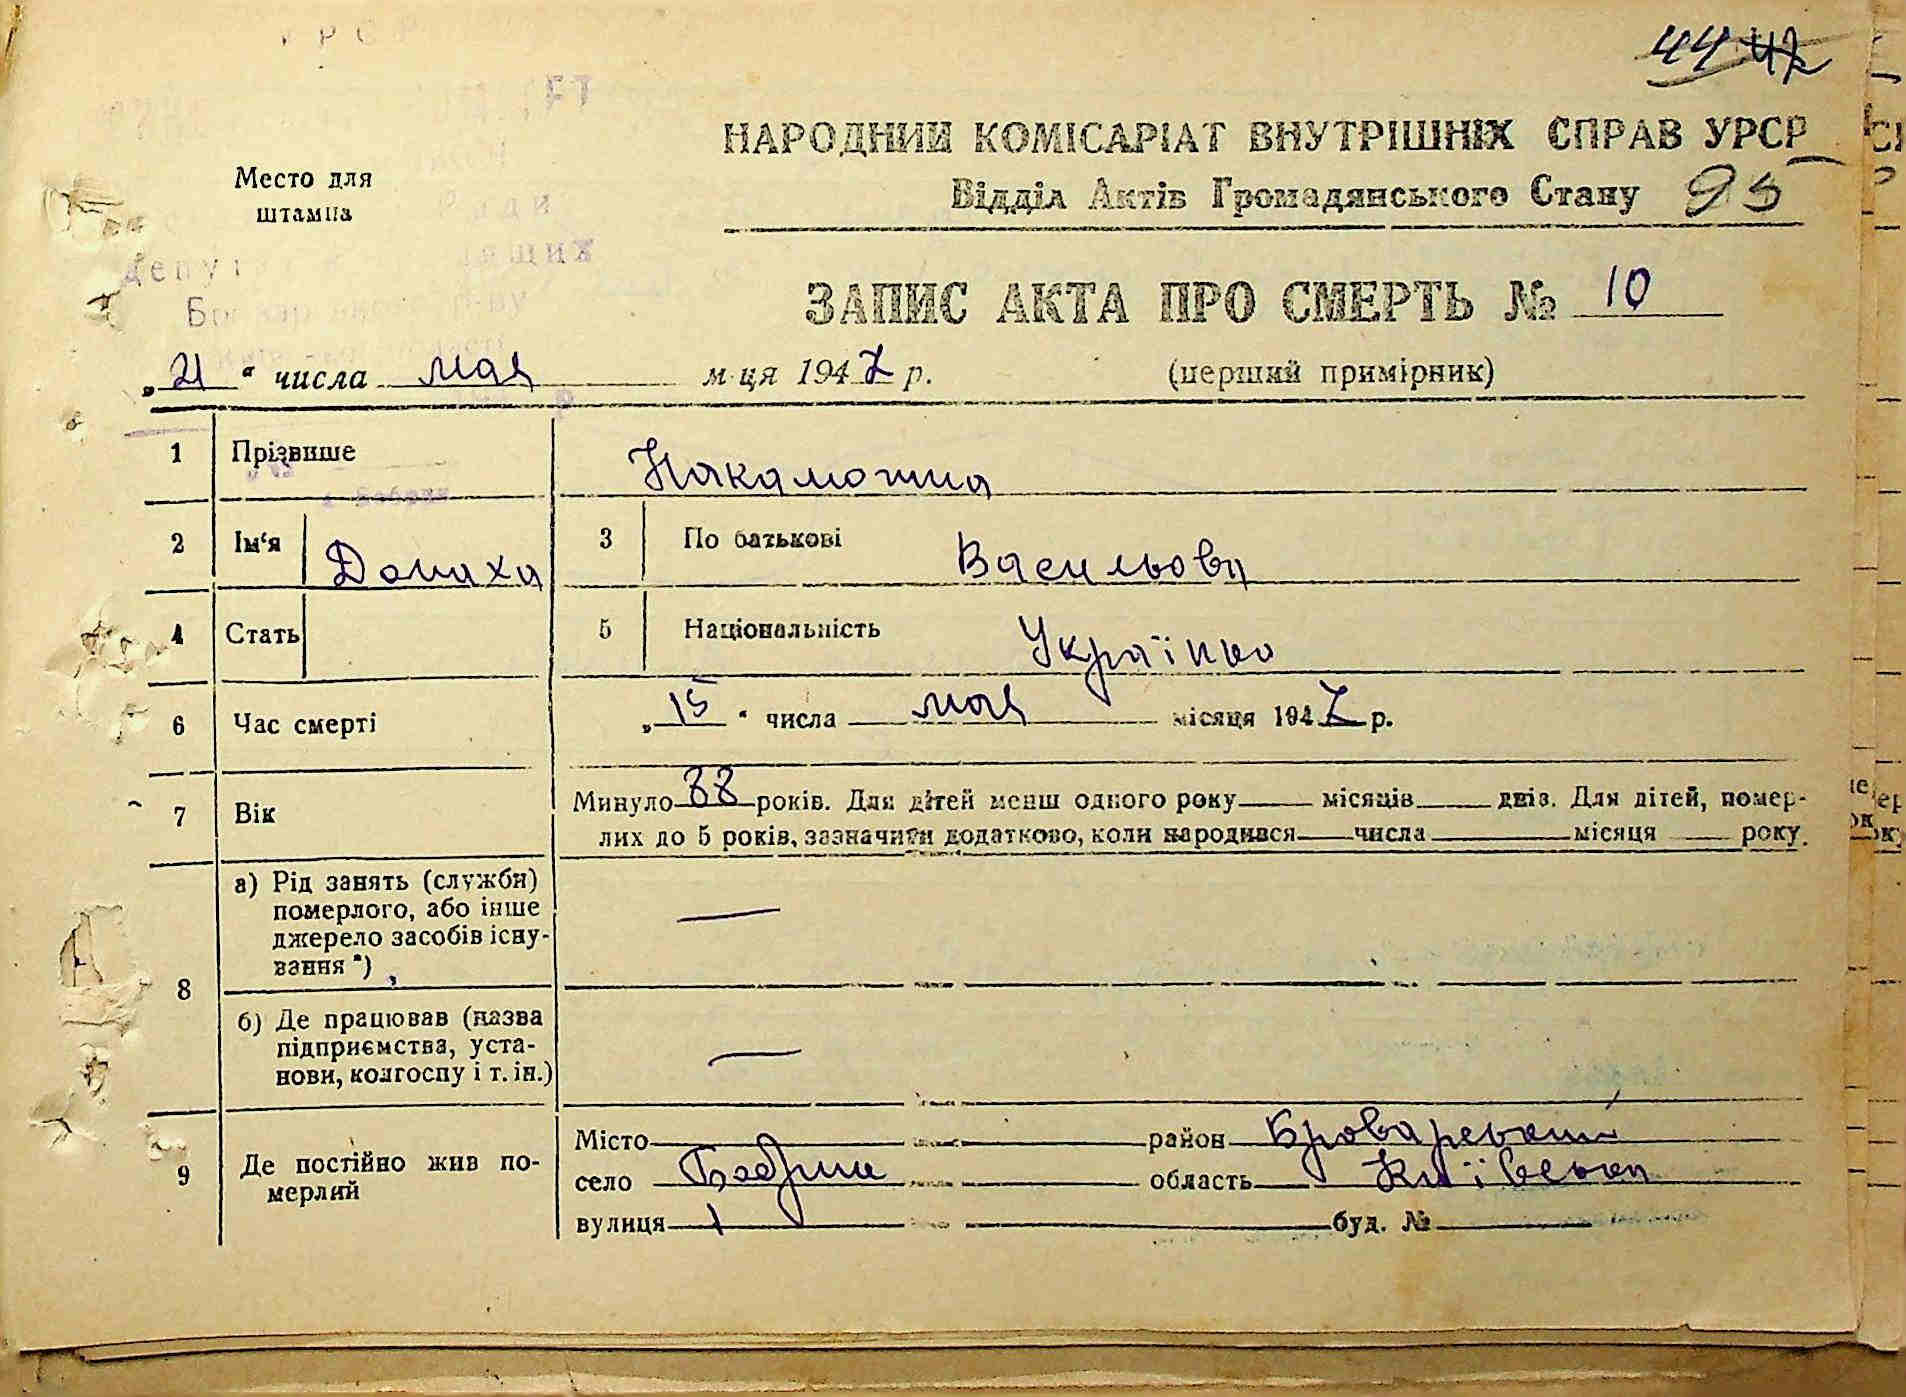 44 42
НАРОДНИЙ КОМІСАРІАТ ВНУТРІШНІХ СПРАВ УРСР
Місто для
штампа
Відділ Актів Громадянського Стану 95
ЗАПИС АКТА ПРО СМЕРТЬ № 10
„21“ числа мая м-ця 1947 р. (перший примірник)
1 Прізвище Накамотна
2 Ім‘я Домаха 3 По батькові Васильовн
4 Стать 5 Національність Українка
6 Час смерті „15“ числа мая місяця 1947 р.
7 Вік Минуло 88 років. Для дітей менш одного року місяців днів. Для дітей, помер-
лих до 5 років, зазначити додатково, коли народився числа місяця року.
8 а) Рід занять (служби)
померлого, або інше
джерело засобів існу-
вання *) —
б) Де працював (назва
підприємства, уста-
нови, колгоспу і т. ін.) —
9 Де постійно жив по-
мерлий
Місто район Броварський
село область Київська
вулиця буд. №